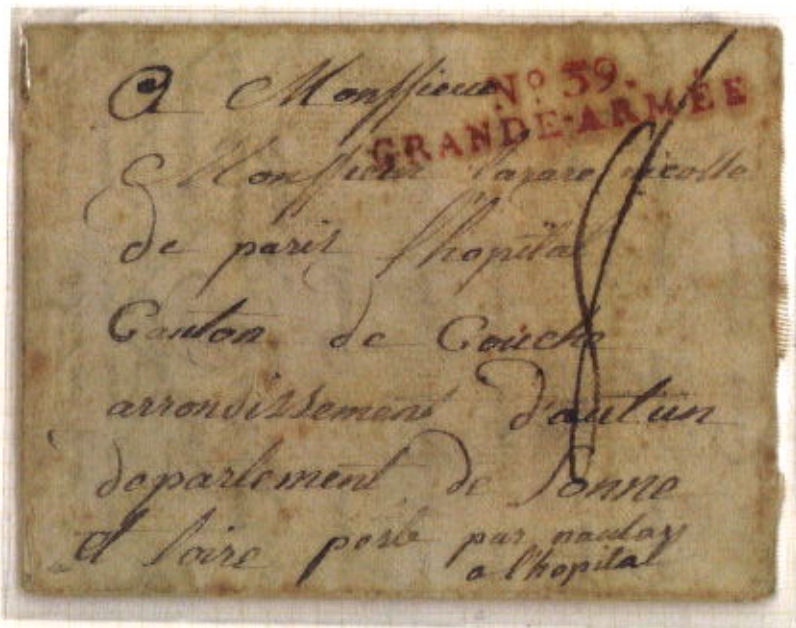 A Monsieur
N° 39.
GRANDE-ARMÉE
Monsieur lazare nicolle
de paris lhopital
Canton de Couche
arrondissement d'autun
departement de Sonne
et loire poste par
a l'hopital